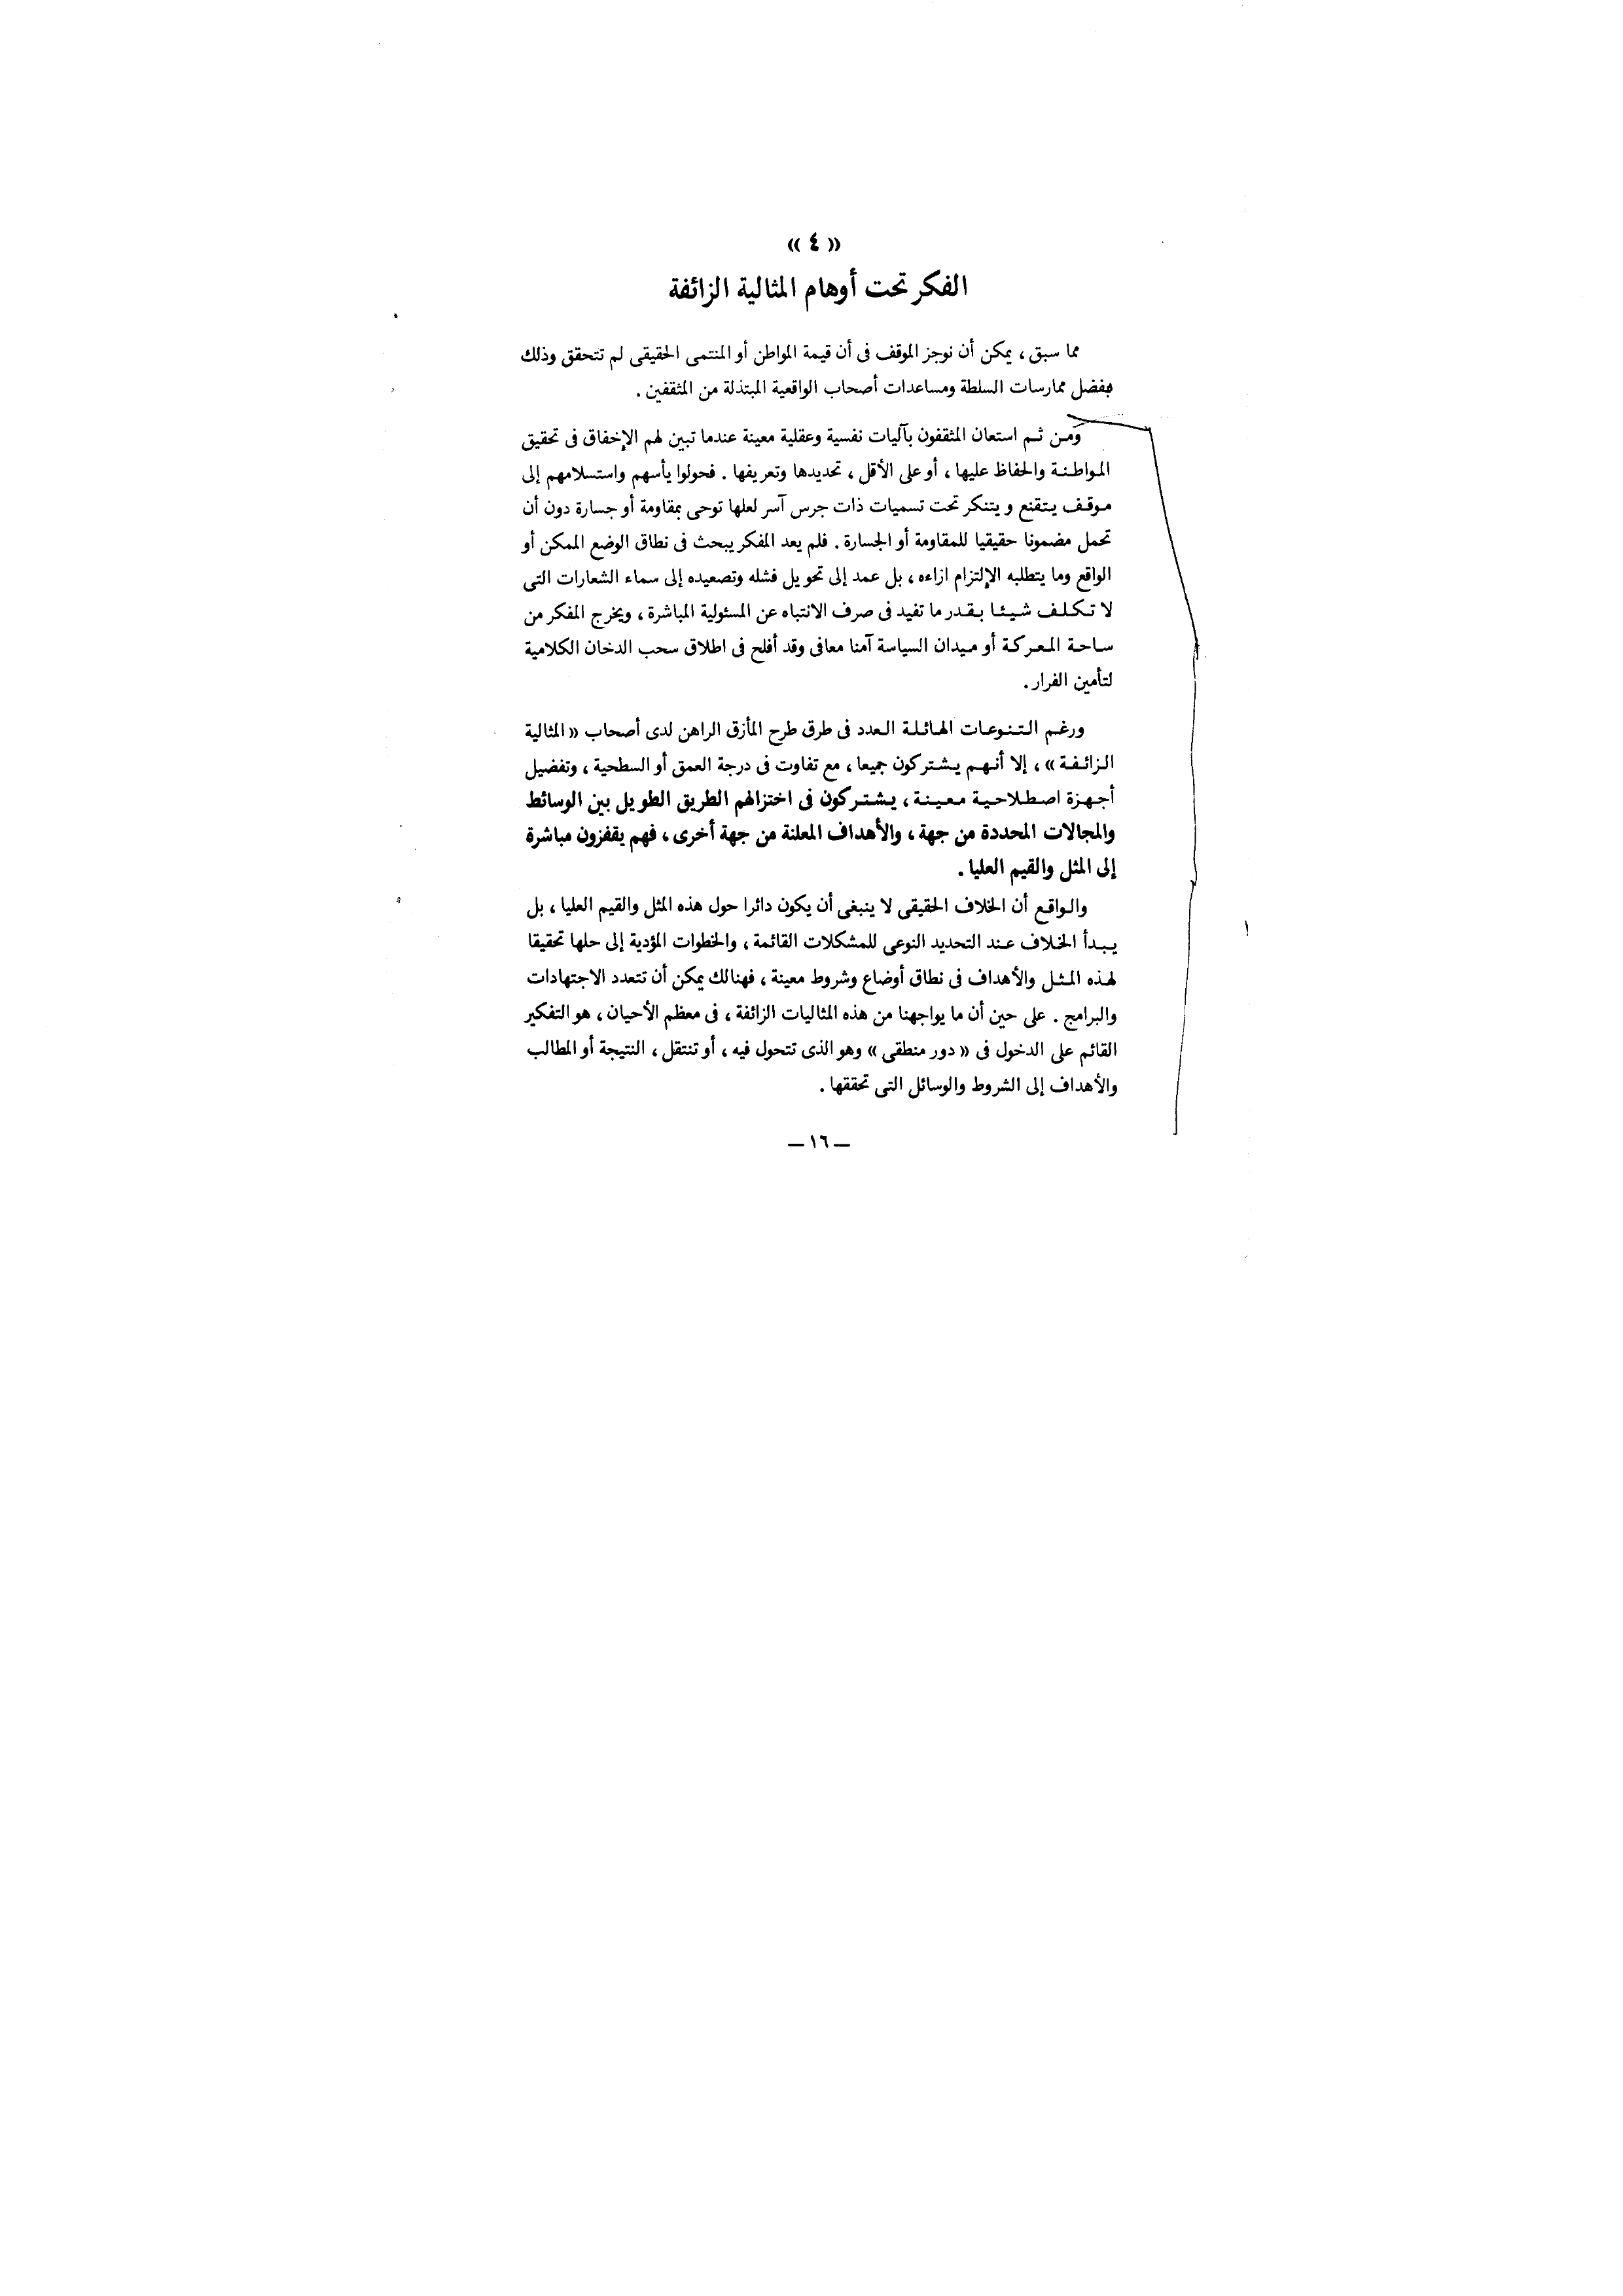 « ٤ »
الفكر تحت أوهام المثالية الزائفة
مما سبق ، يمكن أن نوجز الموقف فى أن قيمة المواطن أو المنتمى الحقيقى لم تتحقق وذلك
بفضل ممارسات السلطة ومساعدات أصحاب الواقعية المبتذلة من المثقفين .
ومن ثم استعان المثقفون بآليات نفسية وعقلية معينة عندما تبين لهم الإخفاق فى تحقيق
المواطنة والحفاظ عليها ، أو على الأقل ، تحديدها وتعريفها . فحولوا يأسهم واستسلامهم إلى
موقف يتقنع ويتنكر تحت تسميات ذات جرس آسر لعلها توحى بمقاومة أو جسارة دون أن
تحمل مضمونا حقيقيا للمقاومة أو الجسارة . فلم يعد المفكر يبحث فى نطاق الوضع الممكن أو
الواقع وما يتطلبه الإلتزام ازاءه ، بل عمد إلى تحويل فشله وتصعيده إلى سماء الشعارات التى
لا تكلف شيئا بقدر ما تفيد فى صرف الانتباه عن المسئولية المباشرة ، ويخرج المفكر من
ساحة المعركة أو ميدان السياسة آمنا معافى وقد أفلح فى اطلاق سحب الدخان الكلامية
لتأمين الفرار .
ورغم التنوعات الهائلة العدد فى طرق طرح المأزق الراهن لدى أصحاب « المثالية
الزائفة » ، إلا أنهم يشتركون جميعا ، مع تفاوت فى درجة العمق أو السطحية ، وتفضيل
أجهزة اصطلاحية معينة ، يشتركون فى اختزالهم الطريق الطويل بين الوسائط
والمجالات المحددة من جهة ، والأهداف المعلنة من جهة أخرى ، فهم يقفزون مباشرة
إلى المثل والقيم العليا .
والواقع أن الخلاف الحقيقى لا ينبغى أن يكون دائرا حول هذه المثل والقيم العليا ، بل
يبدأ الخلاف عند التحديد النوعى للمشكلات القائمة ، والخطوات المؤدية إلى حلها تحقيقا
لهذه المثل والأهداف فى نطاق أوضاع وشروط معينة ، فهنالك يمكن أن تتعدد الاجتهادات
والبرامج . على حين أن ما يواجهنا من هذه المثاليات الزائفة ، فى معظم الأحيان ، هو التفكير
القائم على الدخول فى « دور منطقى » وهو الذى تتحول فيه ، أو تنتقل ، النتيجة أو المطالب
والأهداف إلى الشروط والوسائل التى تحققها .
— ١٦ —